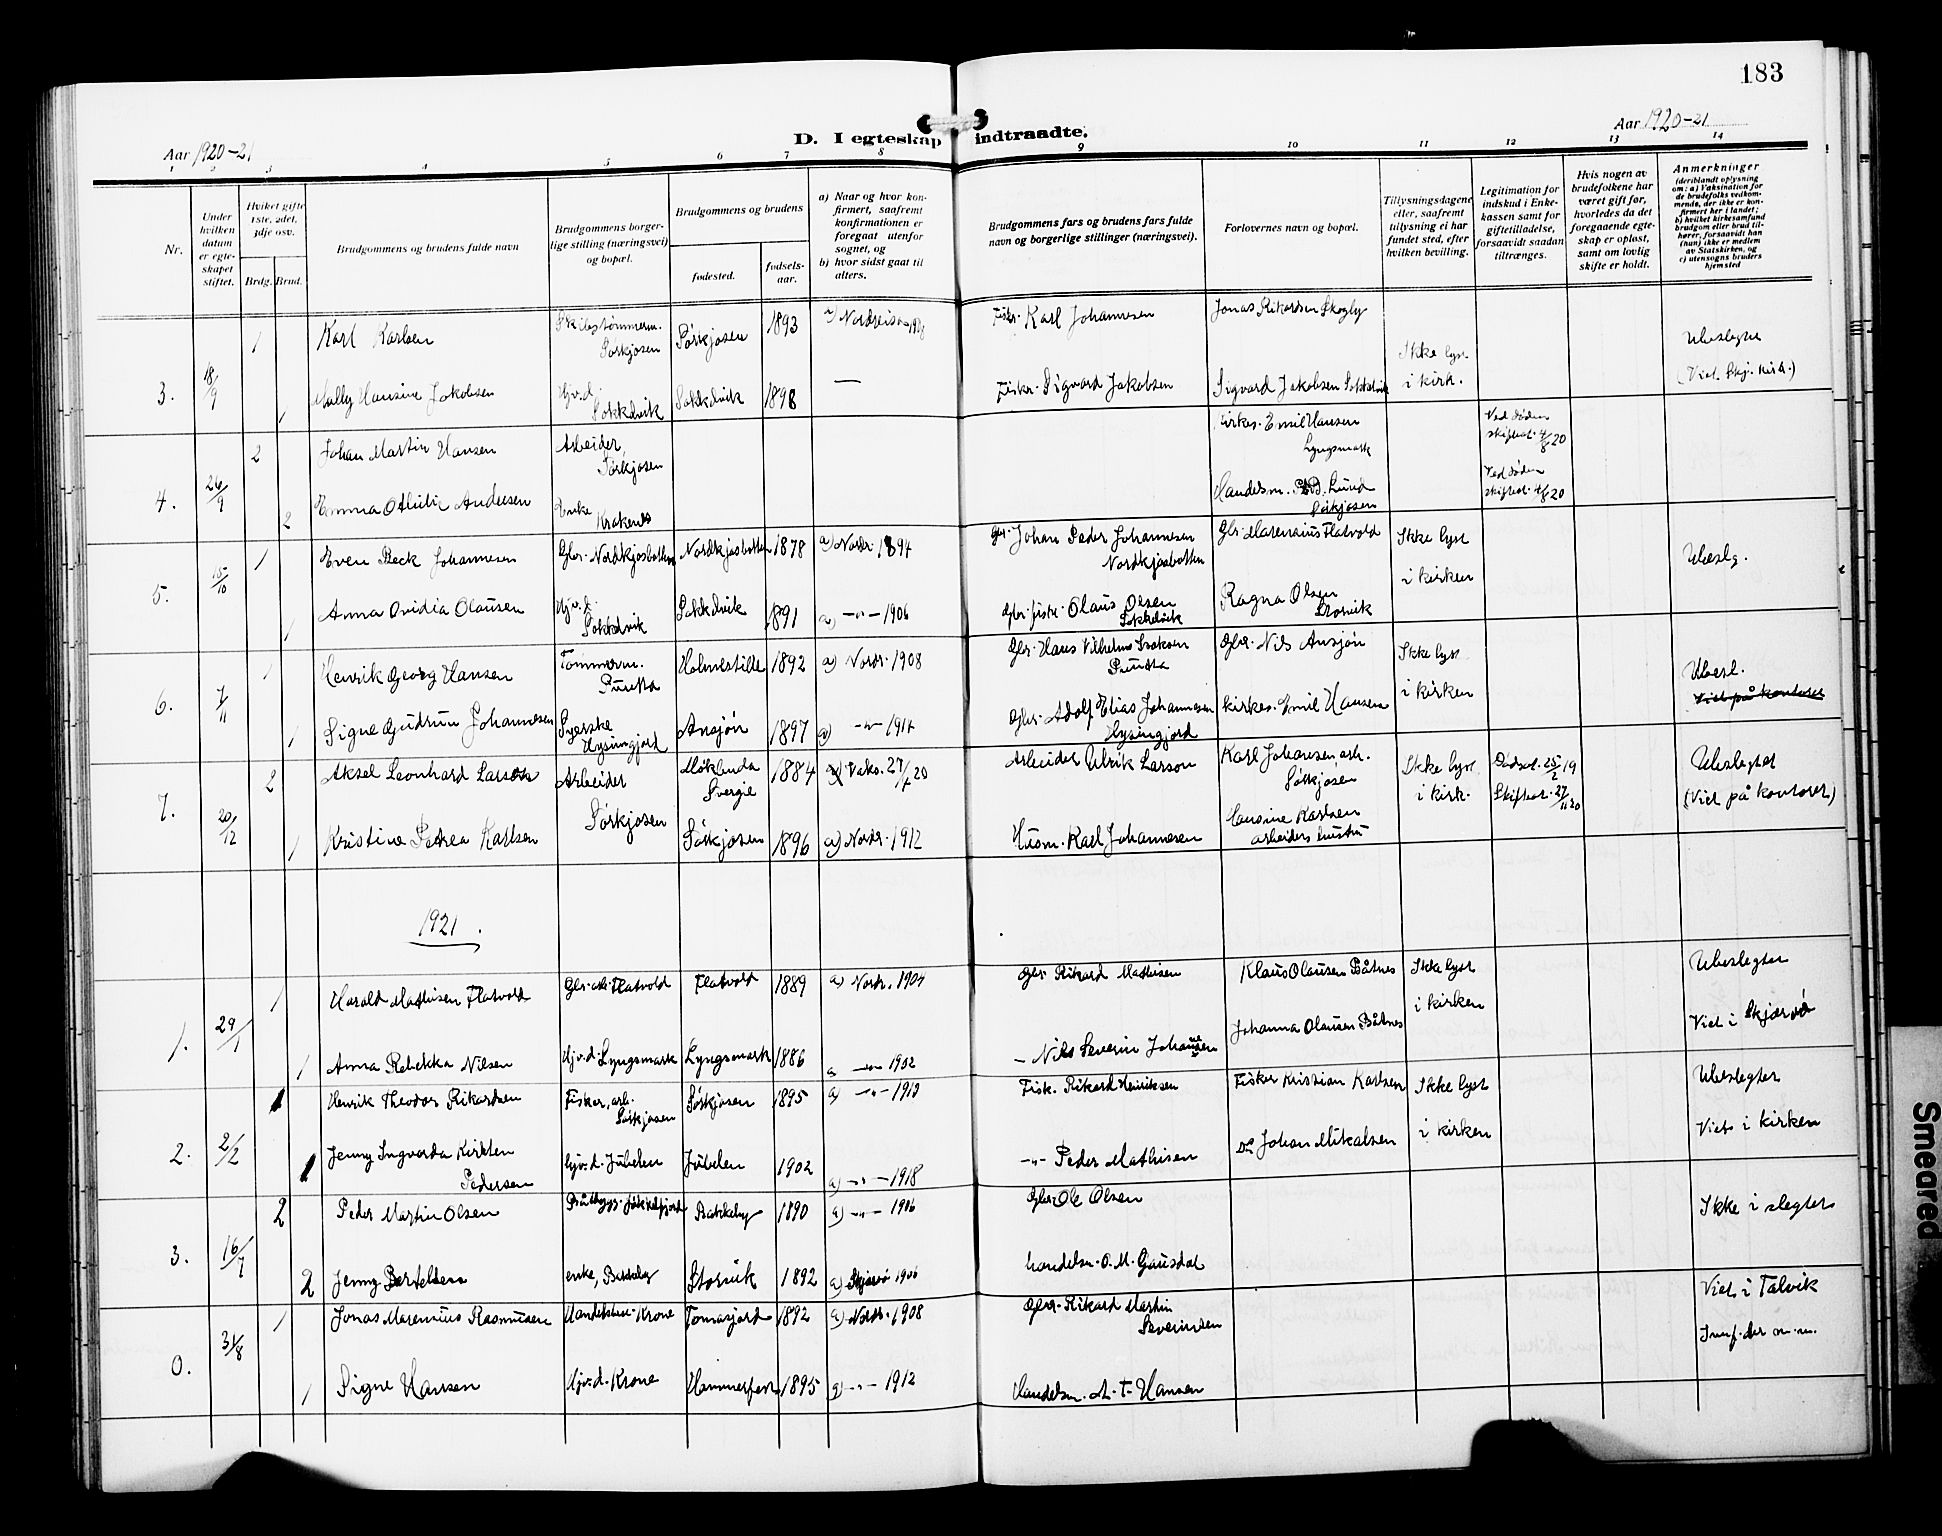 183
D. I egteskap indtraadte.
Aar 1920-21
Aar 1920-21
1 2 3 4 5 6 7 8 9 10 11 12 13 14
Nr.
Under hvilken datum er egteskapet stiftet.
Hviket gifte 1ste, 2det, 3dje osv.
Brdg. Brud.
Brudgommens og brudens fulde navn
Brudgommens borgerlige stilling (næringsvei) og bopæl.
Brudgommens og brudens
fødested.
fødselsaar.
a) Naar og hvor konfirmert, saafremt konfirmationen er foregaat utenfor sognet, og
b) hvor sidst gaat til alters.
Brudgommens fars og brudens fars fulde navn og borgerlige stillinger (næringsvei).
Forlovernes navn og bopæl.
Tillysningsdagene eller, saafremt tillysning ei har fundet sted, efter hvilken bevilling.
Legitimation for indskud i Enkekassen samt for giftetilladelse, forsaavidt saadan tiltrænges.
Hvis nogen av brudefolkene har været gift før, hvorledes da det foregaaende egteskap er opløst, samt om lovlig skifte er holdt.
Anmerkninger
(deriblandt oplysning om: a) Vaksination for de brudefolks vedkommende, der ikke er konfirmert her i landet; b) hvilket kirkesamfund brudgom eller brud tilhører, forsaavidt han (hun) ikke er medlem av Statskirken, og c) utensogns bruders hjemsted
3. 18/9 1 Karl Karlsen Skibstømmerm. Sørkjosen Sørkjosen 1893 a) Nordreisa Fisker Karl Johannesen Jonas Rikardsen Skogly Ikke lyst i kirk. Ubeslegtet (Viet. Skj. kirk.)
1 Hansine Jakobsen Hjv.d. Sokkelvik Sokkelvik 1898 — Fisker Sigvard Jakobsen Sigvard Jakobsen Sokkelvik
4. 26/9 2 Johan Martin Hansen Arbeider, Sørkjosen Kirkes. Emil Hansen Lyngsmark Ved døden skifteat. 4/8 20
2 Emma Othilie Andersen Enke Krakenes Handelsm. Lund Sørkjosen Ved døden skifteat. 4/8 20
5. 15/10 1 Even Beck Johannesen Gbr. Nordkjosbotten Nordkjosbotten 1878 a) Nordr. 1894 Gbr. Johan Peder Johannesen Nordkjosbotten Gbr. Marenius Flatvold Ikke lyst i kirken Ubeslg.
1 Anna Ovidia Olausen Hjv.d. Sokkelvik Sokkelvik 1891 a) —"— 1906 Gbr. fisk. Olaus Olsen Sokkelvik Ragna Olsen Storvik
6. 7/11 1 Henrik Georg Hansen Tømmerm. Punta Holmestille 1892 a) Nordr. 1908 Gbr. Hans Vilhelms Isaksen Punta Gbr. Nils Ansjøn Ikke lyst i kirken Ubesl. Viet på kontoret
1 Signe Gudrun Johannesen Syerske Hysingjord Ansjøn 1897 a) —"— 1914 Gbr. Adolf Elias Johannesen Hysingjord Kirkes. Emil Hansen
7. 20/12 2 Aksel Leonhard Larsen Arbeider Sørkjosen Svergie 1884 Vaks. 27/4 20 Arbeider Ulrik Larson Karl Johansen arb. Sørkjosen Ikke lyst i kirk. Dødsat. 25/2 19 Skifteat. 27/11 20 Ubeslegtet (Viet på kontoret)
1 Kristine Petrea Karlsen Sørkjosen 1896 a) Nordr. 1912 Husm. Karl Johannesen Hansine Karlsen arbeiders hustru
1921.
1. 29/1 1 Harald Mathisen Flatvold Gbr. Flatvold Flatvold 1889 a) Nordr. 1904 Gbr. Rikard Mathisen Klaus Olausen Båtnes Ikke lyst i kirken Ubeslegtet Viet i Skjærvø
1 Anna Rebekka Nilsen Hjv.d. Lyngsmark Lyngsmark 1886 a) —"— 1902 — Nils Severin Johansen Johanna Olausen Båtnes
2. 2/2 1 Henrik Theodor Rikardsen Fisker, arb. Sørkjosen Sørkjosen 1895 a) —"— 1913 Fisk. Rikard Henriksen Fisker Kristian Karlsen Ikke lyst i kirken Ubeslegtet Viet i kirken
1 Jenny Ingvarda Kirsten Pedersen hjv.d. Jubelen Jubelen 1902 a) —"— 1918 —"— Peder Mathisen Do Johan Mikalsen
3. 16/7 2 Peder Martin Olsen Jøkkelfjord Bakkeby 1890 a) —"— 1906 Gbr. Ole Olsen Ikke i slegter
2 Jenny Bertelsen enke, Bakkeby Storvik 1892 a) Skjærvø 1906 handelsm. O. M. Gausdal Viet i Talvik
0. 31/8 1 Jonas Marenius Rasmussen Handelsbest. Krone Tomasjord 1892 a) Nordr. 1908 Gbr. Rikard Martin Severinsen
1 Signe Hansen Hjv.d. Krone Hammerfest 1895 a) —"— 1912 Handelsm. A. T. Hansen
Smeared